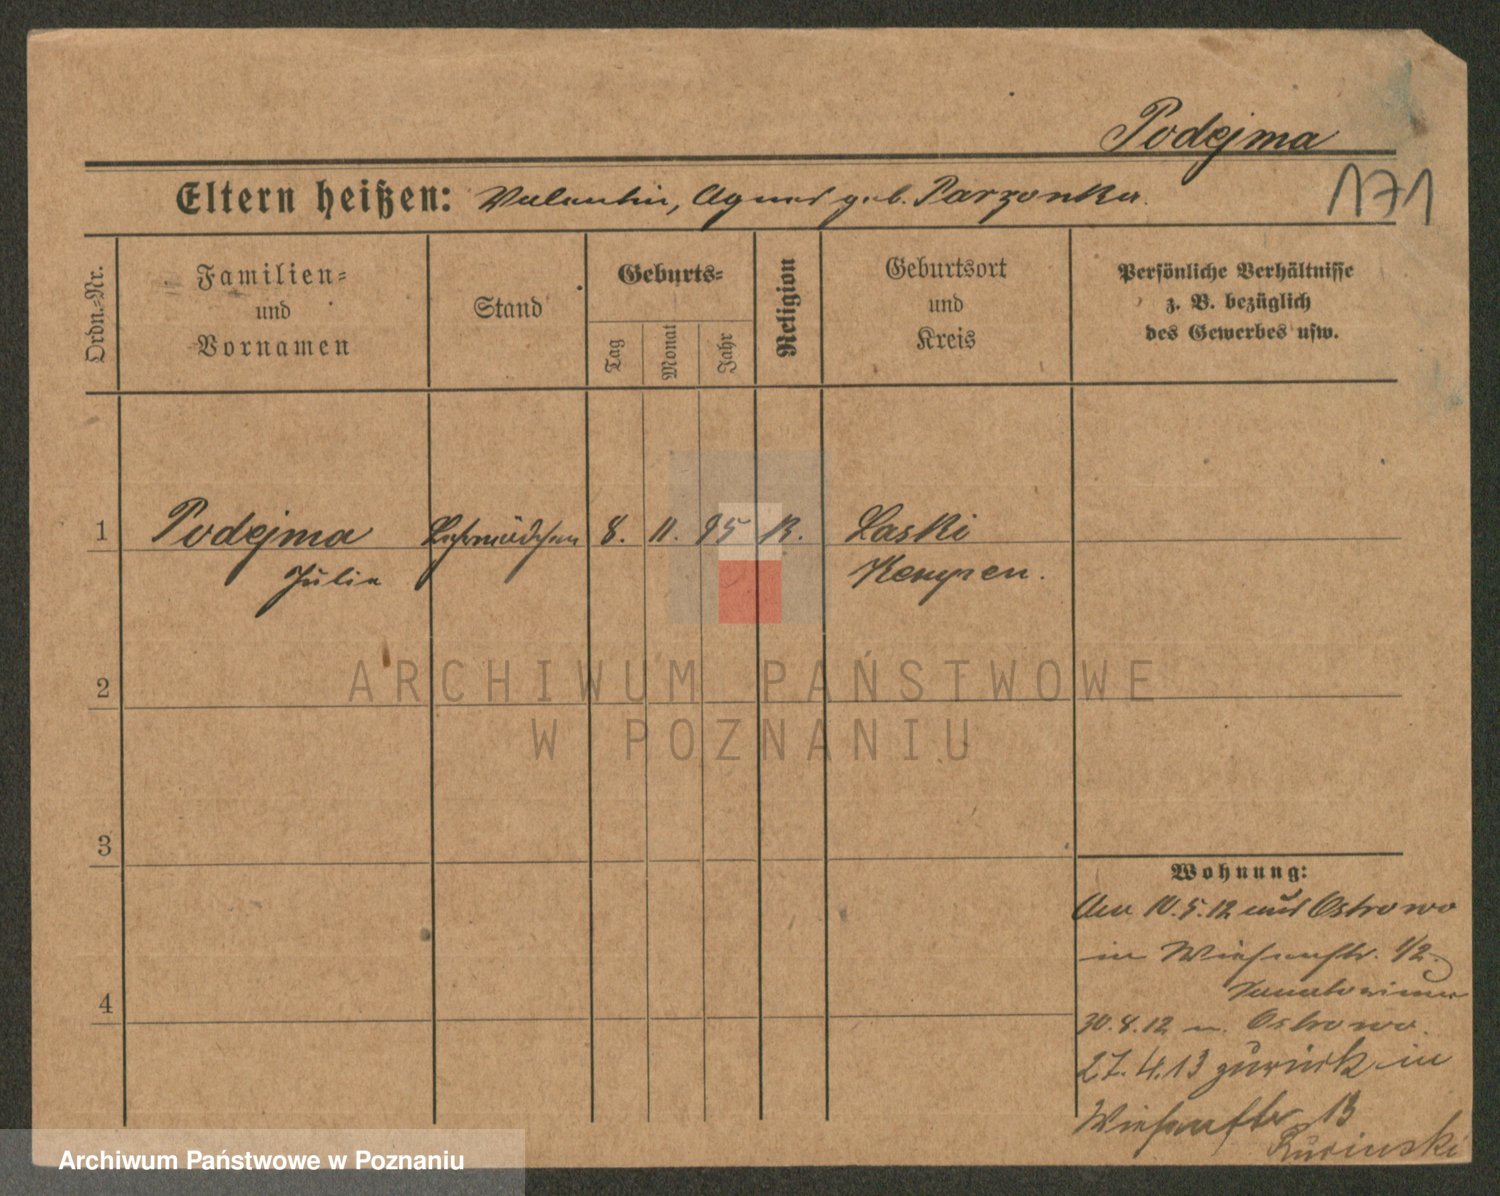 Podejma
171
Eltern heißen: Valentin, Agnes geb. Parzonka.
Ordn.-Nr.
Familien- und Vornamen
Stand
Geburts-
Tag
Monat
Jahr
Religion
Geburtsort und Kreis
Persönliche Verhältnisse
z. B. bezüglich
des Gewerbes usw.
1 Podejma Lehrmädchen 8. 11. 95 K. Laski
Julie Kempen.
2
3
4
Wohnung:
Am 10.5.12 aus Ostrowo
in Wiesenstr. 1/2
Sanatorium
30.8.12 n. Ostrowo.
27.4.13 zurück in
Wiesenstr 13
Rusinski
ARCHIWUM PAŃSTWOWE
W POZNANIU
Archiwum Państwowe w Poznaniu